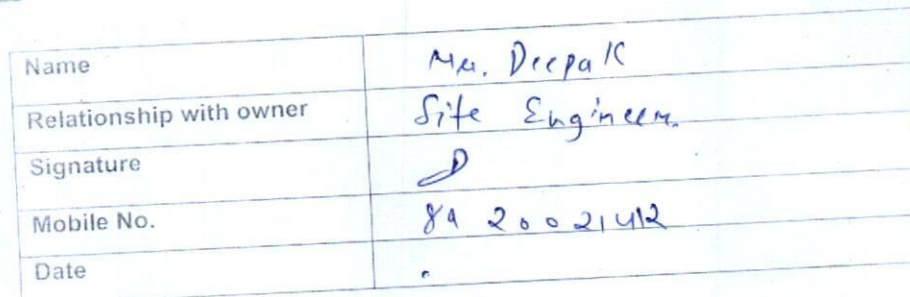 Name Mr. Deepak
Relationship with owner Site Engineer.
Signature
Mobile No. 89 20021412
Date